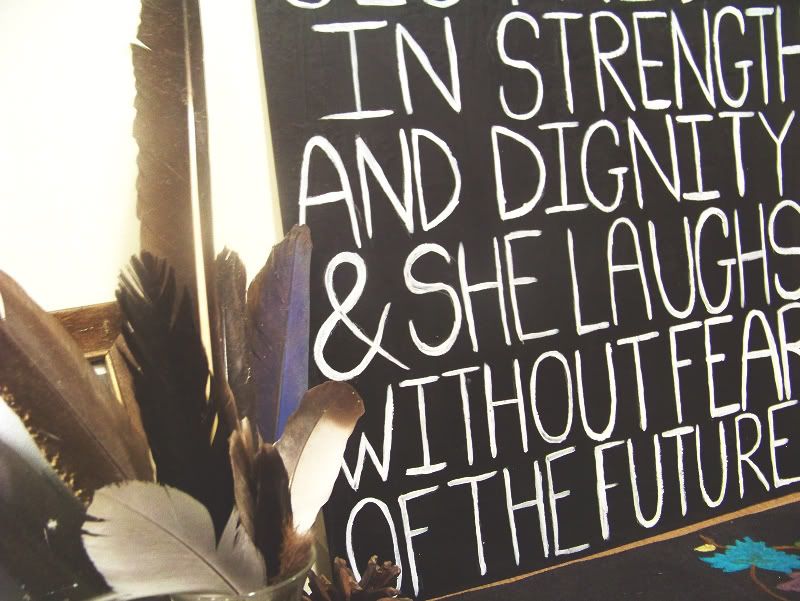 IN STRENGTH
AND DIGNITY
& SHE LAUGHS
WITHOUT FEAR
OF THE FUTURE